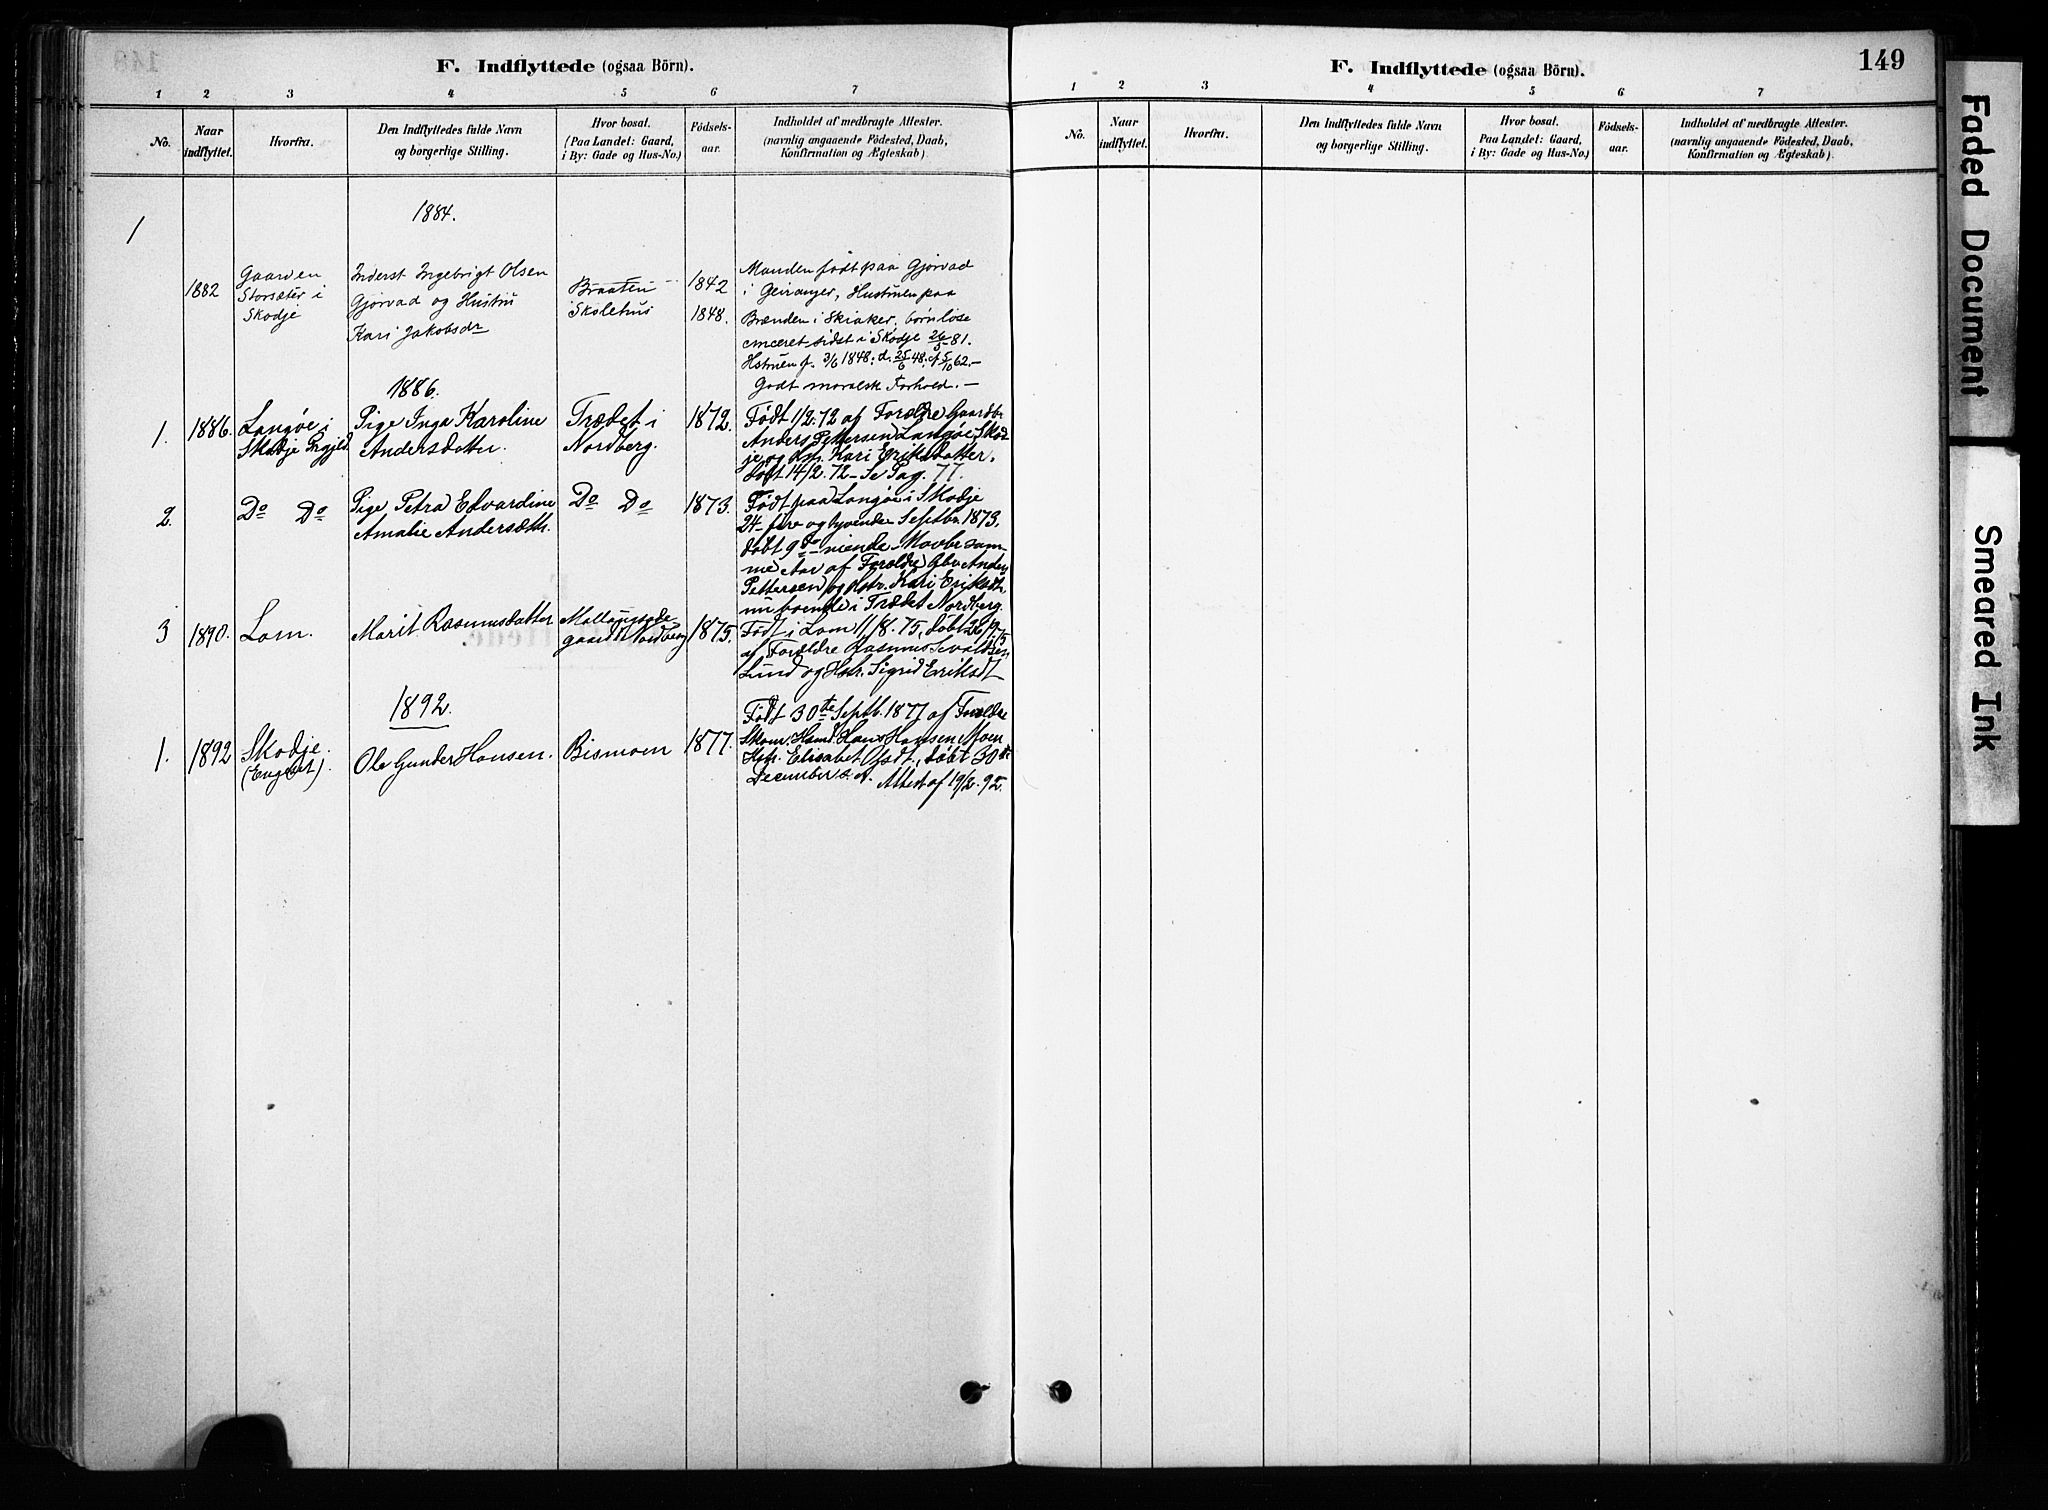 F. Indflyttede (ogsaa Börn).
1 2 3 4 5 6 7
No.
Naar indflyttet.
Hvorfra.
Den Indflyttedes fulde Navn
og borgerlige Stilling.
Hvor bosat.
(Paa Landet: Gaard,
i By: Gade og Hus-No.)
Födsels-
aar.
Indholdet af medbragte Attester.
(navnlig angaaende Födested, Daab,
Konfirmation og Ægteskab).
1884.
1
1882
Gaarden
Storsæter i
Skodje
Inderst Ingebrigt Olsen
Gjørvad og Hustru
Kari Jakobsdr
Braaten
Skolehus
1842
1848.
Manden født paa Gjørvad
i Geiranger, Hustruen paa
Brænden i Skiaker, børnløse
cmceret sidst i Skodje 26/3 81.
Hstruen f. 3/6 1848: d. 25/6 48. cf 5/10 62.–
Godt moralsk Forhold. –
1886.
1.
1886.
Langøe i
Skodje Prgjeld
Pige Inga Karoline
Andersdatter.
Trædet i
Nordberg.
1872.
Født 1/2. 72 af Forældre Gaardbr
Anders Pettersen Langøe, Skod-
je og Hstr. Kari Eriksdatter,
døbt 14/2. 72 – Se Pag. 77.
2.
Do Do
Pige Petra Edvardine
Amalie Andersdtr.
Do Do
1873.
Født paa Langøe i Skodje
24– fire og tyvende Septbr. 1873,
døbt 9de – niende – Novbr sam-
me Aar af Forældre Gbr. Anders
Pettersen og Hstr. Kari Eriksdtr,
nu boende i Trædet Nordberg.
3
1890.
Lom.
Marit Rasmusdatter
gaard Nordberg
1875.
Født i Lom 11/8. 75, døbt 26/9 75
af Forældre Rasmus Sevaldsen
Lund og Hstr. Sigrid Eriksdt
1892.
1.
1892
Skodje.
Ole Gunder Hansen.
Bismoen
1877.
Født 30te Septb. 1877 af Forældre
Skom. Hand. Hans Hansen Moen
Hstr. Elisabet Olsdt., døbt 30te
December s. A. Attest af 19/2. 92.
F. Indflyttede (ogsaa Börn).
149
1 2 3 4 5 6 7
No.
Naar indflyttet.
Hvorfra.
Den Indflyttedes fulde Navn
og borgerlige Stilling.
Hvor bosat.
(Paa Landet: Gaard,
i By: Gade og Hus-No.)
Födsels-
aar.
Indholdet af medbragte Attester.
(navnlig angaaende Födested, Daab,
Konfirmation og Ægteskab).
Faded Document
Smeared Ink